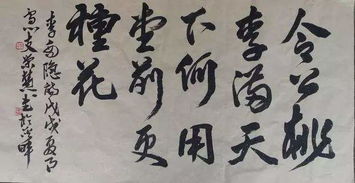 令公桃
李满天
下何用
堂前更
種花
李商隐诗戊戌夏月